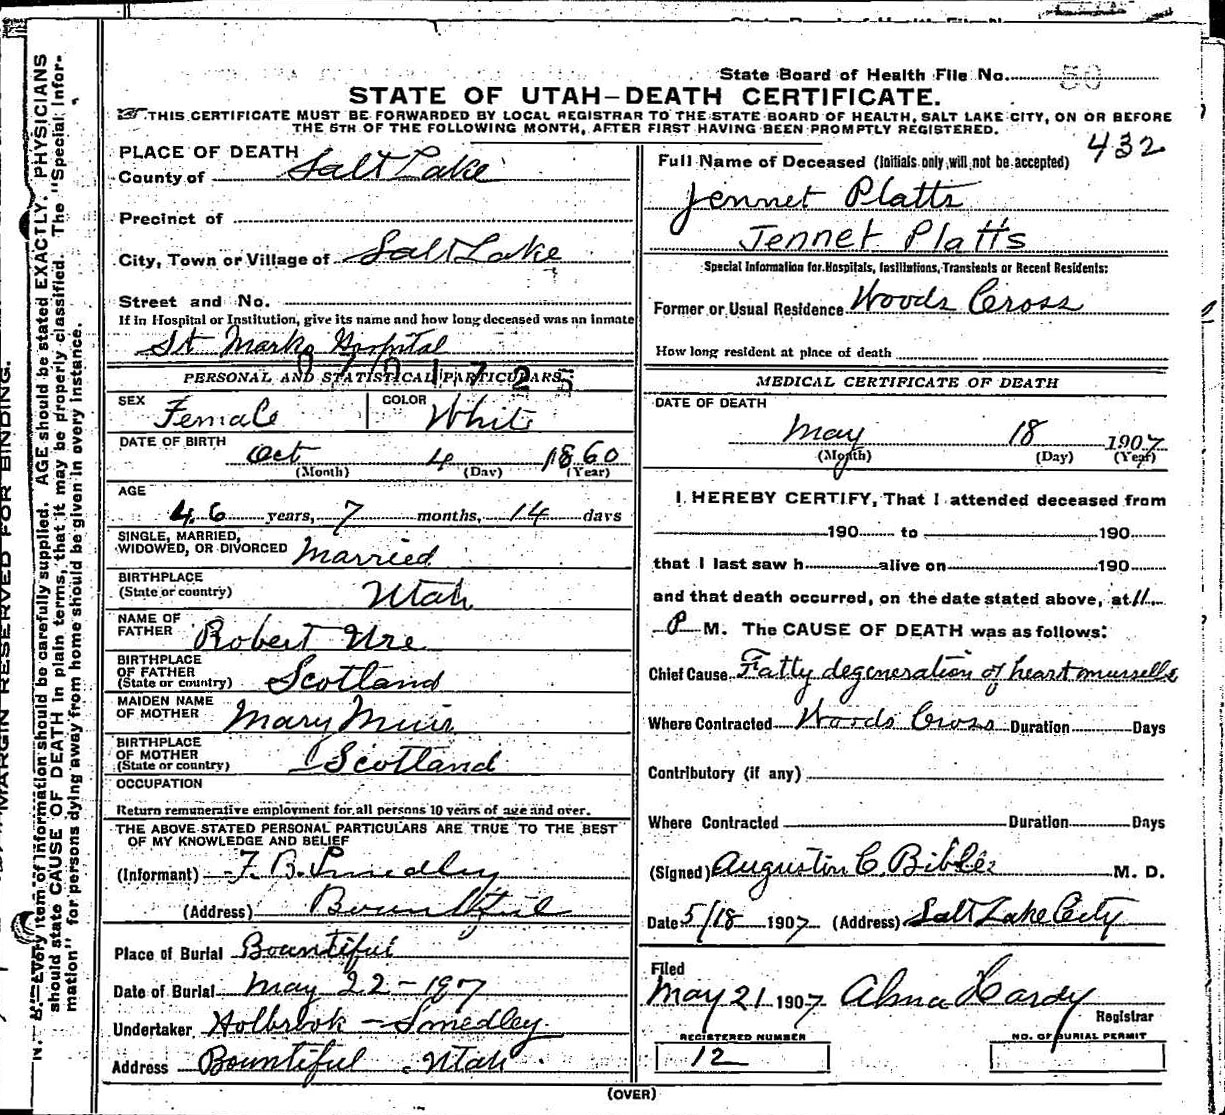 State Board of Health File No. 50
STATE OF UTAH-DEATH CERTIFICATE.
THIS CERTIFICATE MUST BE FORWARDED BY LOCAL REGISTRAR TO THE STATE BOARD OF HEALTH, SALT LAKE CITY, ON OR BEFORE
THE 5TH OF THE FOLLOWING MONTH, AFTER FIRST HAVING BEEN PROMPTLY REGISTERED.
432
PLACE OF DEATH
County of Salt Lake
Precinct of
City, Town or Village of Salt Lake
Street and No.
If in Hospital or Institution, give its name and how long deceased was an inmate
St Marks Hospital
PERSONAL AND STATISTICAL PARTICULARS
SEX Female COLOR White
DATE OF BIRTH
Oct 4 1860
(Month) (Day) (Year)
AGE
46 years, 7 months, 14 days
SINGLE, MARRIED,
WIDOWED, OR DIVORCED Married
BIRTHPLACE
(State or country) Utah
NAME OF
FATHER Robert Ure
BIRTHPLACE
OF FATHER
(State or country) Scotland
MAIDEN NAME
OF MOTHER Mary Muir
BIRTHPLACE
OF MOTHER
(State or country) Scotland
OCCUPATION
Return remunerative employment for all persons 10 years of age and over.
THE ABOVE STATED PERSONAL PARTICULARS ARE TRUE TO THE BEST
OF MY KNOWLEDGE AND BELIEF
(Informant) F. B. Smedley
(Address) Bountiful
Place of Burial Bountiful
Date of Burial May 22-1907
Undertaker Holbrook - Smedley
Address Bountiful Utah
Full Name of Deceased (Initials only will not be accepted)
Jennet Platts
Jennet Platts
Special Information for Hospitals, Institutions, Transients or Recent Residents:
Former or Usual Residence Woods Cross
How long resident at place of death
MEDICAL CERTIFICATE OF DEATH
DATE OF DEATH
May 18 1907
(Month) (Day) (Year)
I HEREBY CERTIFY, That I attended deceased from
190 to 190
that I last saw h alive on 190
and that death occurred, on the date stated above, at 11
P M. The CAUSE OF DEATH was as follows:
Chief Cause Fatty degeneration of heart mussells
Where Contracted Woods Cross Duration Days
Contributory (if any)
Where Contracted Duration Days
(Signed) Augustin C. Bibler M. D.
Date 5/18 1907 (Address) Salt Lake City
Filed
May 21 1907 Alma Hardy
Registrar
REGISTERED NUMBER
12
NO. OF BURIAL PERMIT
(OVER)
MARGIN RESERVED FOR BINDING.
N. B.—Every item of information should be carefully supplied. AGE should be stated EXACTLY. PHYSICIANS
should state CAUSE OF DEATH in plain terms, that it may be properly classified. The "Special Infor-
mation" for persons dying away from home should be given in every instance.